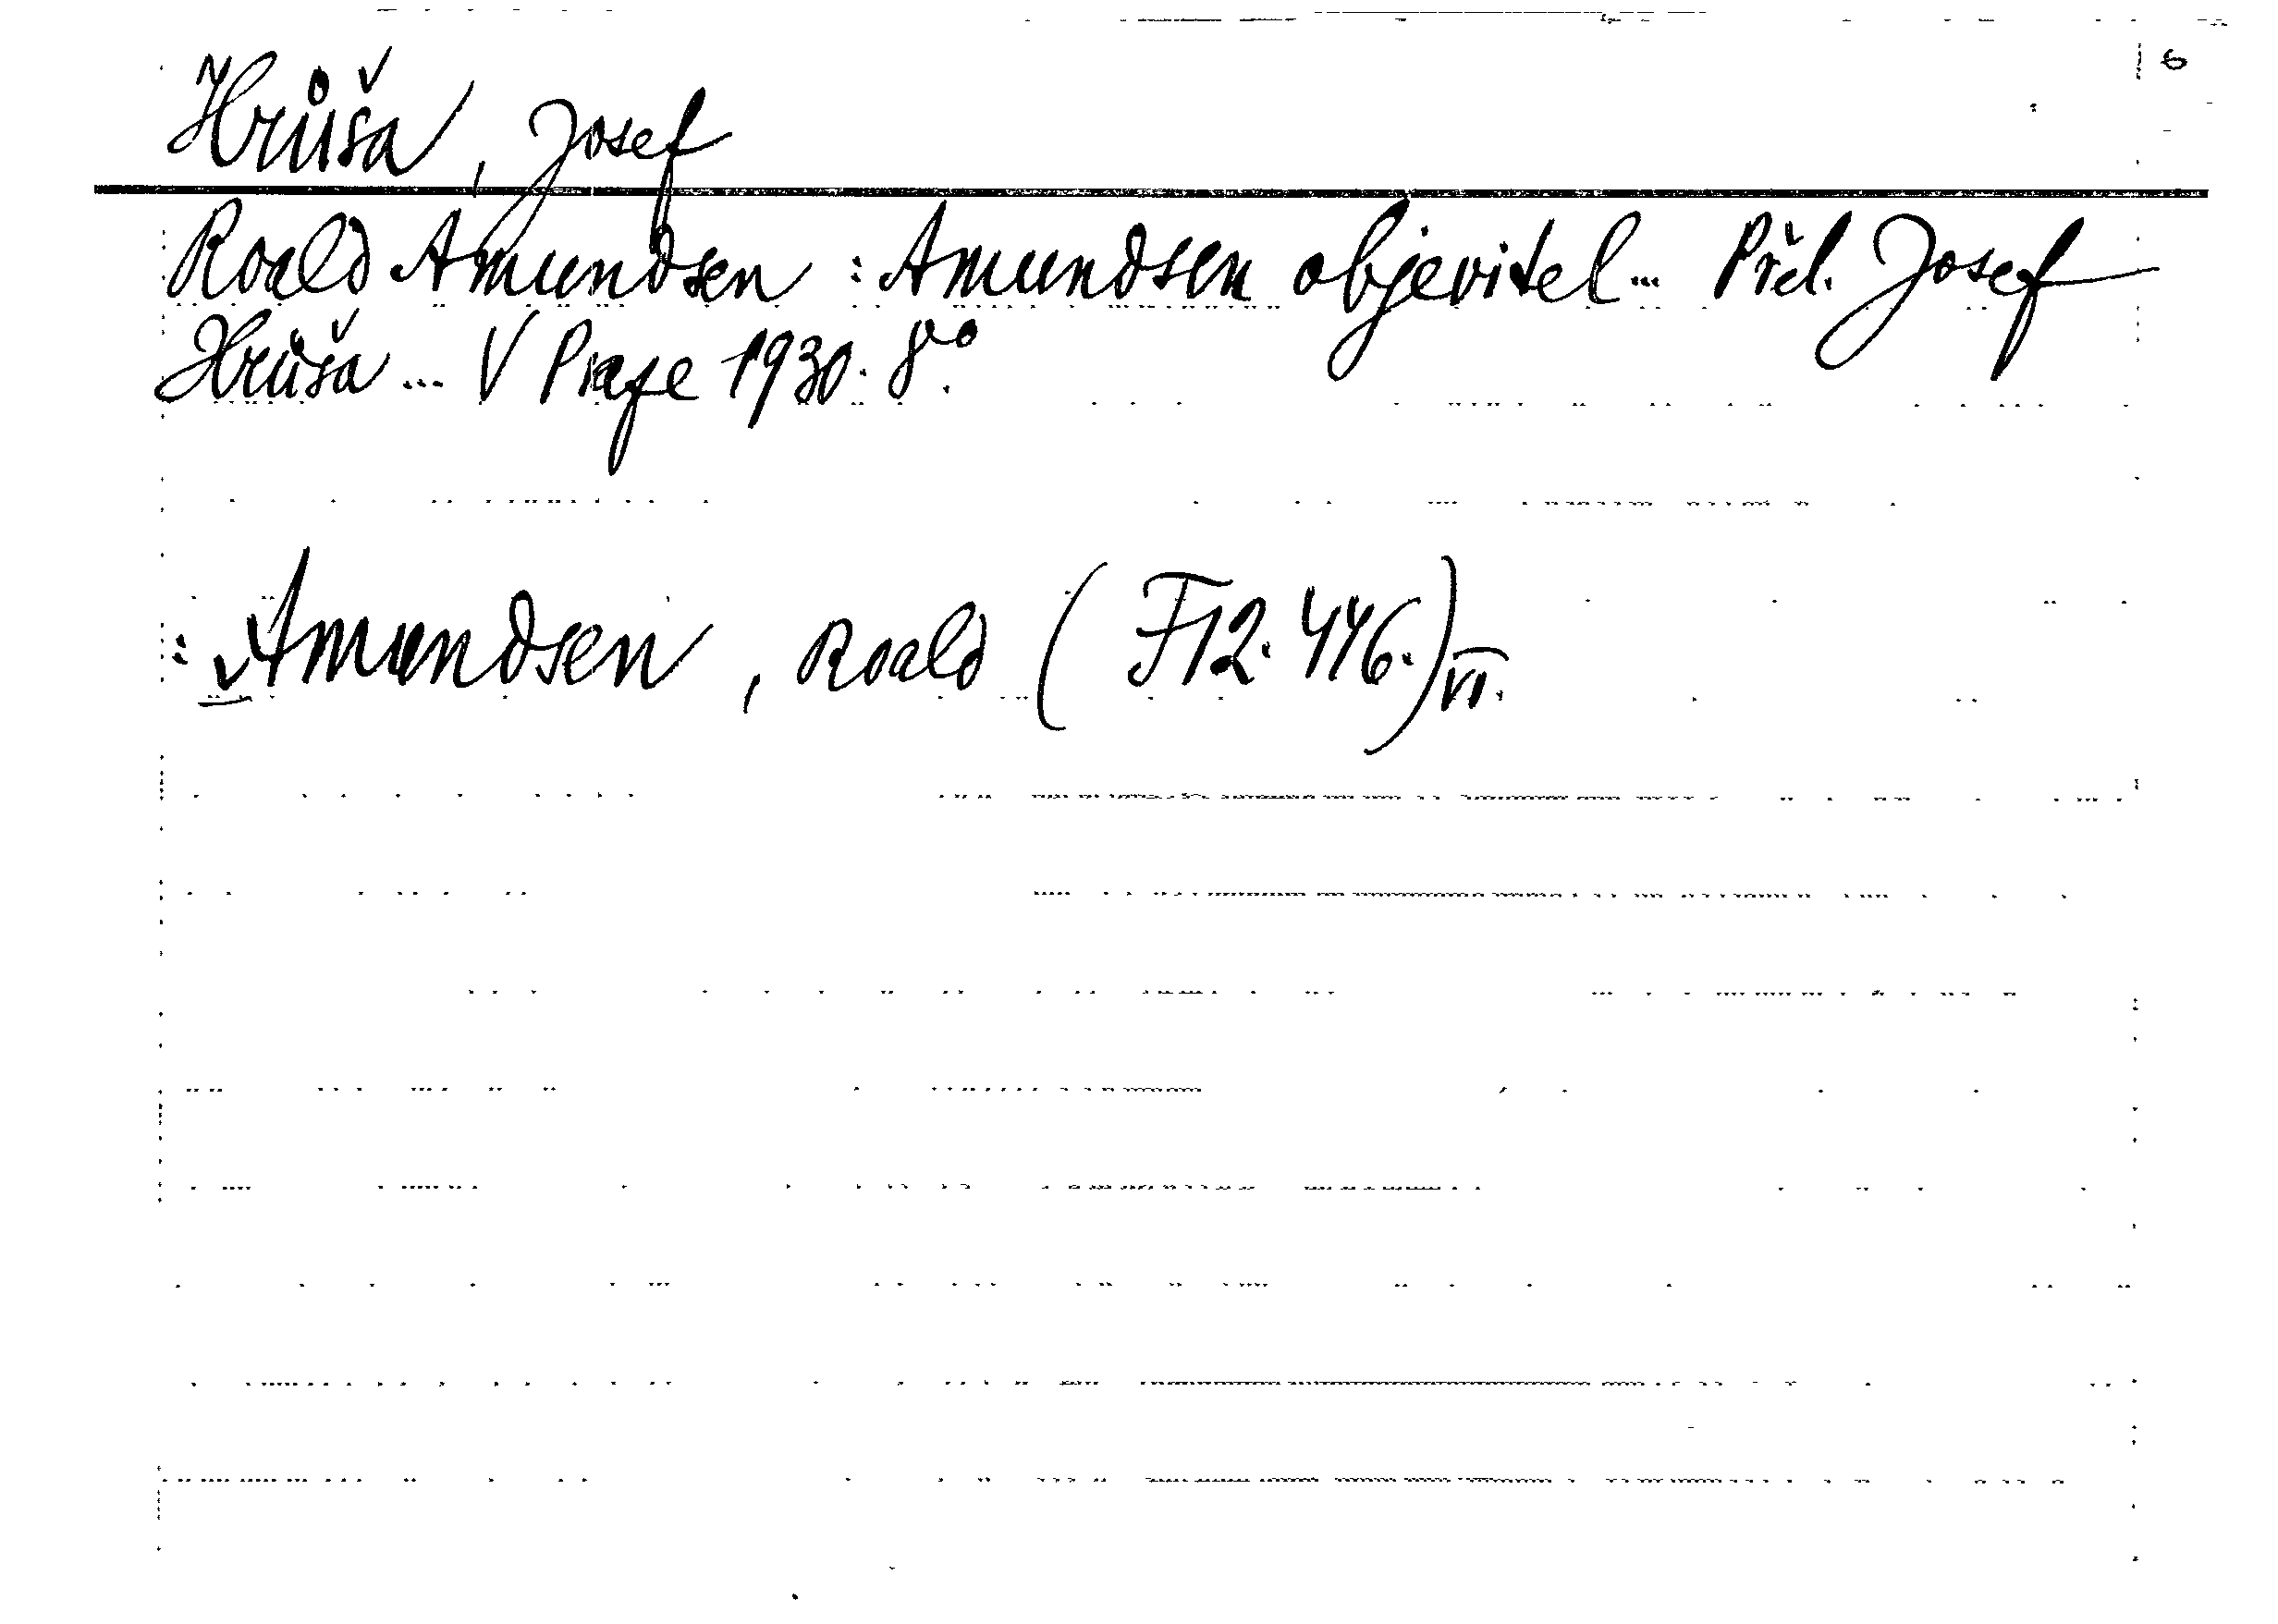 6
Hrůša, Josef
Roald Amundsen : Amundsen objevitel... Přel. Josef
Hrůša ... V Praze 1930. 8°.
: Amundsen, Roald (F12.446.) VI.